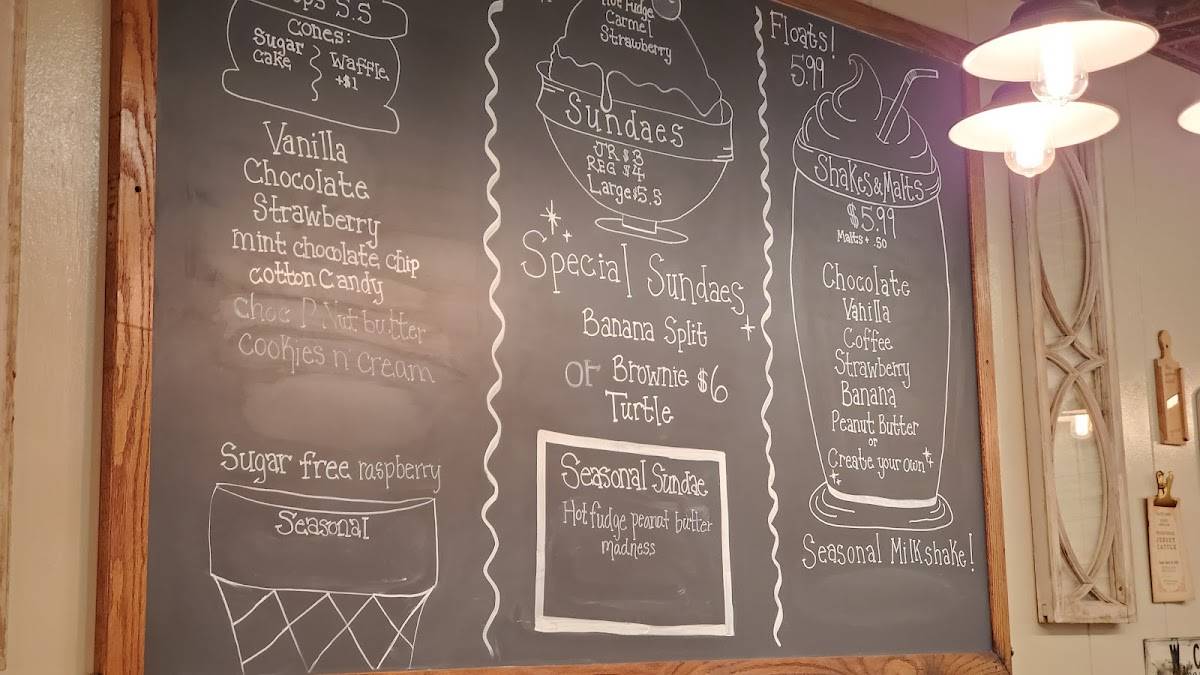 5.5
Cones:
Sugar
Cake
Waffle
+$1
Vanilla
Chocolate
Strawberry
mint chocolate chip
cotton candy
choc P Nut butter
cookies n' cream
Sugar free raspberry
Seasonal
Hot Fudge
Carmel
Strawberry
Sundaes
JR $3
REG $4
Large $5.5
Special Sundaes
Banana Split
or Brownie $6
Turtle
Seasonal Sundae
Hot fudge peanut butter
madness
Floats!
5.99
Shakes & Malts
$5.99
Malts + .50
Chocolate
Vanilla
Coffee
Strawberry
Banana
Peanut Butter
or
Create your own
Seasonal Milkshake!
JERSEY
CATTLE